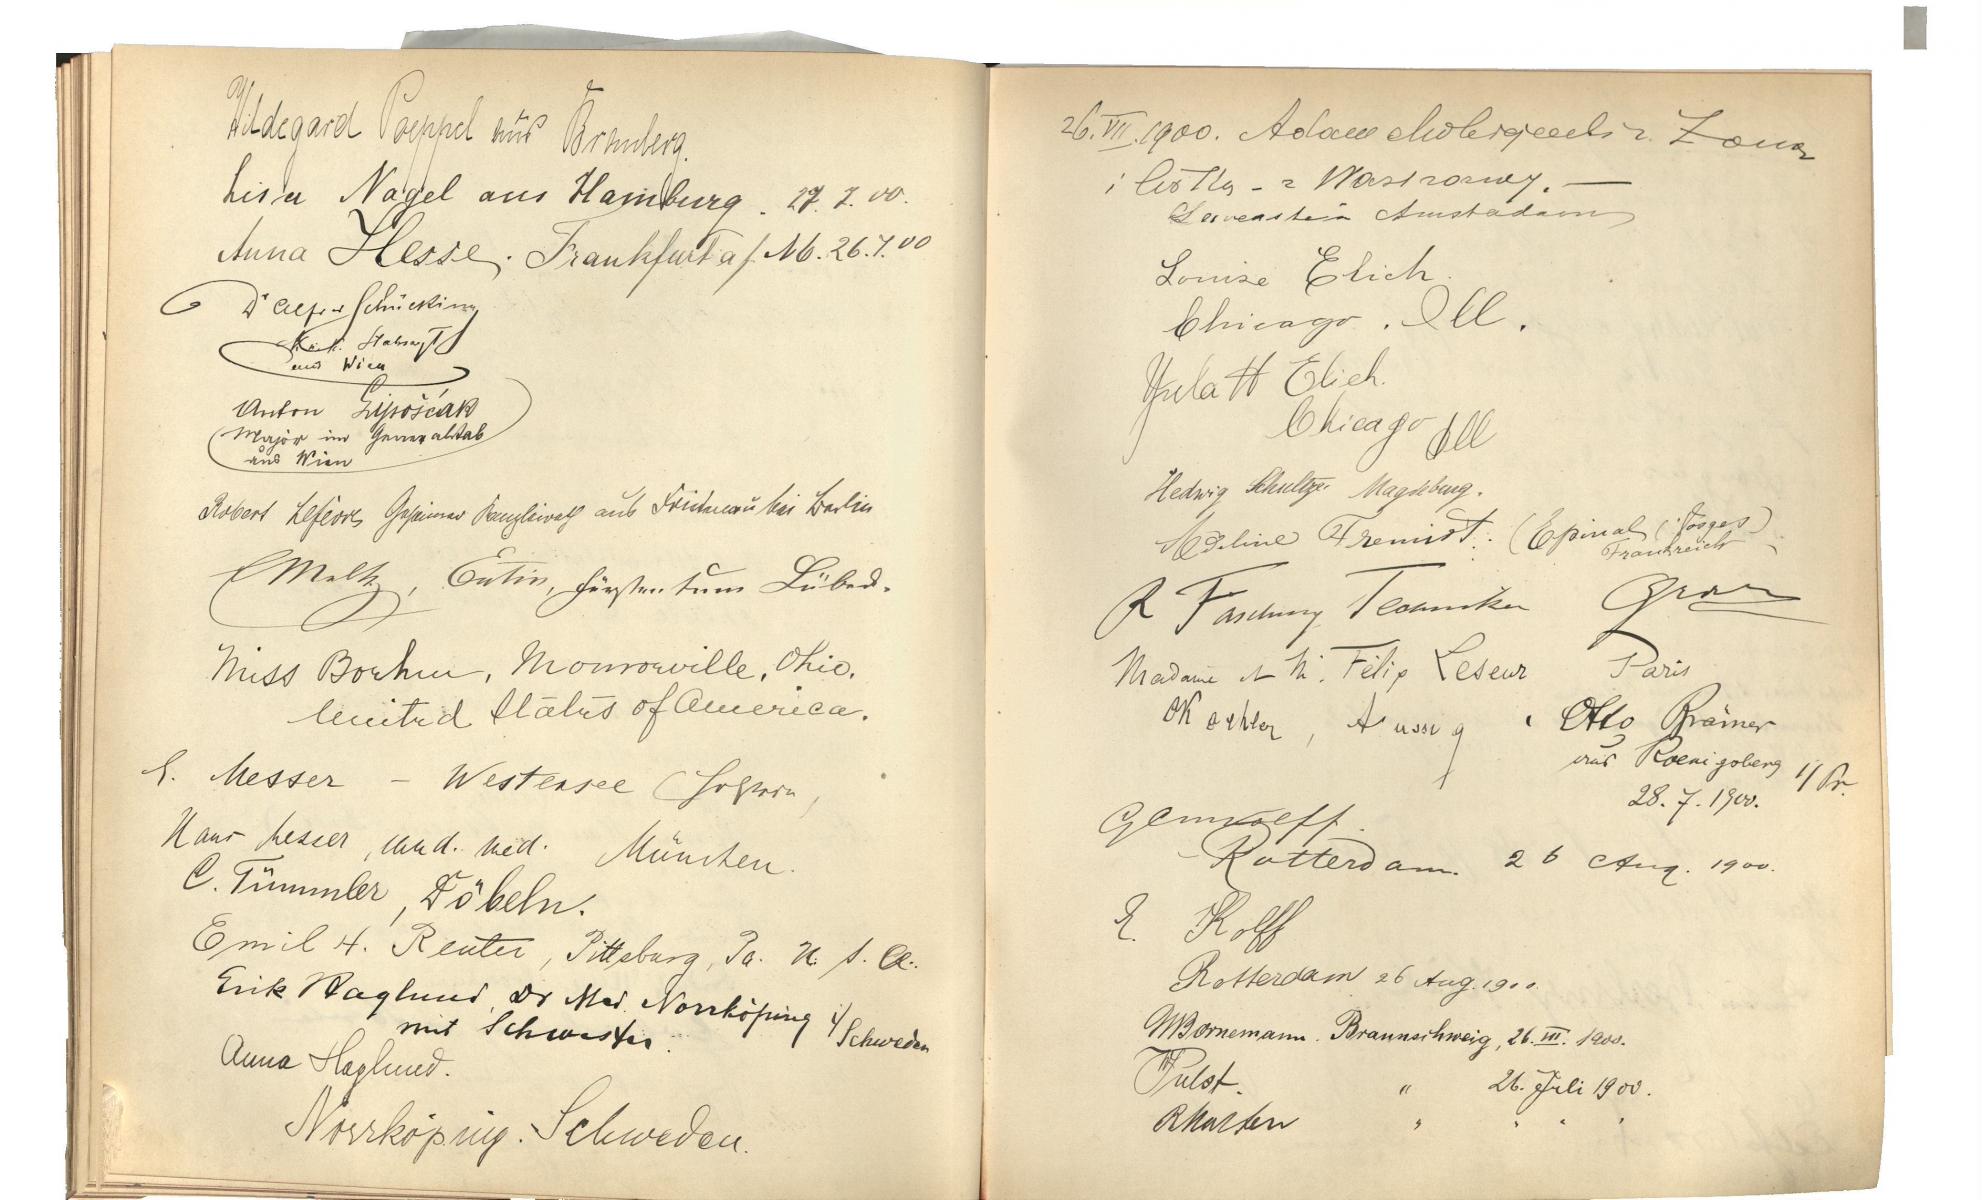 Hildegard Poeppel aus Bromberg.
Lisa Nagel aus Hamburg. 27.7.00.
Anna Hesse. Frankfurt a/M. 26.7.00
Dr Schücking
k. u. k. Stabsarzt
aus Wien
Anton Lipošćak
Major im Generalstab
aus Wien
Robert Lefèvre Geheimer Kanzleirath aus Friedenau bei Berlin
Meltz, Eutin, Fürstentum Lübeck.
Miss Boehm, Monroeville, Ohio.
United States of America.
Messer - Westensee (Holstein)
Hans Messer, cand. med. München.
C. Tümmler, Döbeln.
Emil H. Reuter, Pittsburg, Pa. U. S. A.
Erik Haglund, Dr Med. Norrköping i/Schweden
mit Schwester.
Anna Haglund.
Norrköping. Schweden.
26. VII. 1900. Adam z Żoną
i Córką - z Warszawy. —
Levenstein Amsterdam
Louise Elich.
Chicago. Ill.
Yula H Elich.
Chicago Ill
Hedwig Schultze Magdeburg.
Adeline Fremiot. (Epinal (Vosges)
Frankreich
R Fasching Techniker Graz
Madame et M. Félix Leseur Paris
O Koehler, Aussig
Otto Brämer
aus Koenigsberg i/Pr.
28.7.1900.
Rotterdam. 26 Aug. 1900.
E. Kolff
Rotterdam 26 Aug. 1900
W Bornemann. Braunschweig, 26. III. 1900.
Pulst. " 26. Juli 1900.
" " " "